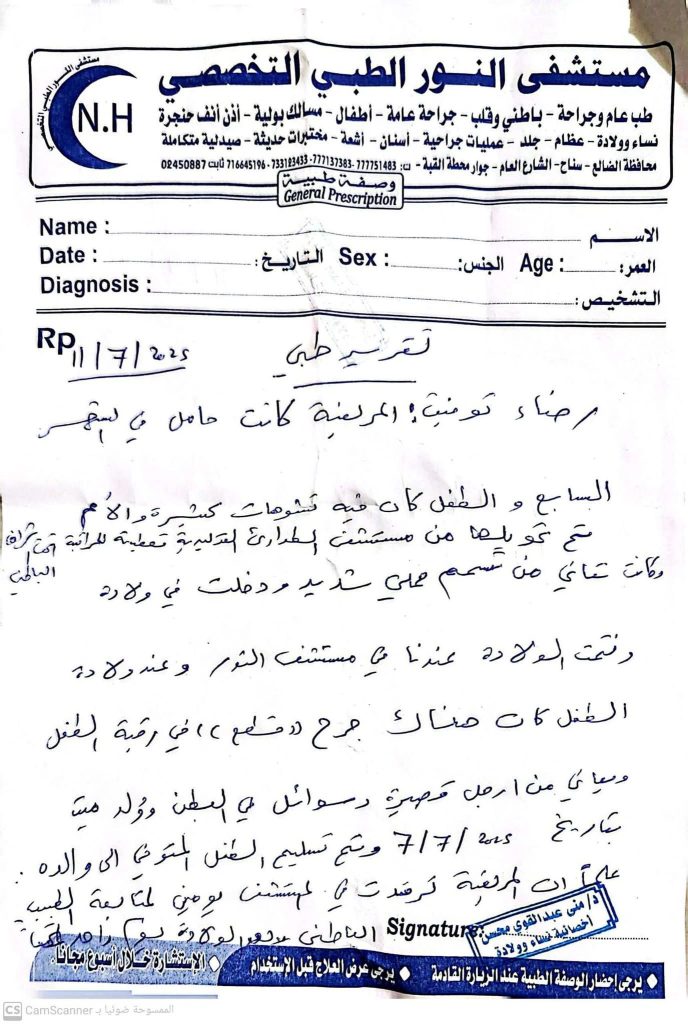 مستشفى النور الطبي التخصصي
مستشفى النور الطبي التخصصي
N.H
طب عام وجراحة - باطني وقلب - جراحة عامة - أطفال - مسالك بولية - أذن أنف حنجرة
نساء وولادة - عظام - جلد - عمليات جراحية - أسنان - أشعة - مختبرات حديثة - صيدلية متكاملة
محافظة الضالع - سناح - الشارع العام - جوار محطة القبة - ت: 777751483 - 777137383 - 733123433 - 716645196 ثابت 02450887
وصفة طبية
General Prescription
Name : الاسم
Date : التاريخ: Sex : الجنس: Age : العمر:
Diagnosis : التشخيص:
Rp 11/7/2025 تقرير طبي
المريضة كانت حامل في الشهر
السابع و الطفل كان فيه تشوهات كثيرة والأم
تم تحويلها من مستشفى الطوارئ التوليدية قعطبة للمراقبة تحت إشراف
الباطني
وكانت تعاني من تسمم حملي شديد ودخلت في ولادة
وتمت الولادة عندنا في مستشفى النور وعند ولادة
الطفل كان هناك جرح ((قطع)) في رقبة الطفل
ويعاني من ارجل قصيرة وسوائل في البطن وولد ميت
بتاريخ 7/7/2025 وتم تسليم الطفل المتوفي الى والده.
علماً ان المريضة ترقدت في المستشفى يومين لمتابعة الطبيب
الباطني الولادة
Signature:
د/ منى عبدالقوي محسن
اخصائية نساء وولادة
يرجى إحضار الوصفة الطبية عند الزيارة القادمة ◆ يرجى عرض العلاج قبل الإستخدام ◆ الإستشارة خلال أسبوع مجاناً.
CS CamScanner الممسوحة ضوئيا بـ